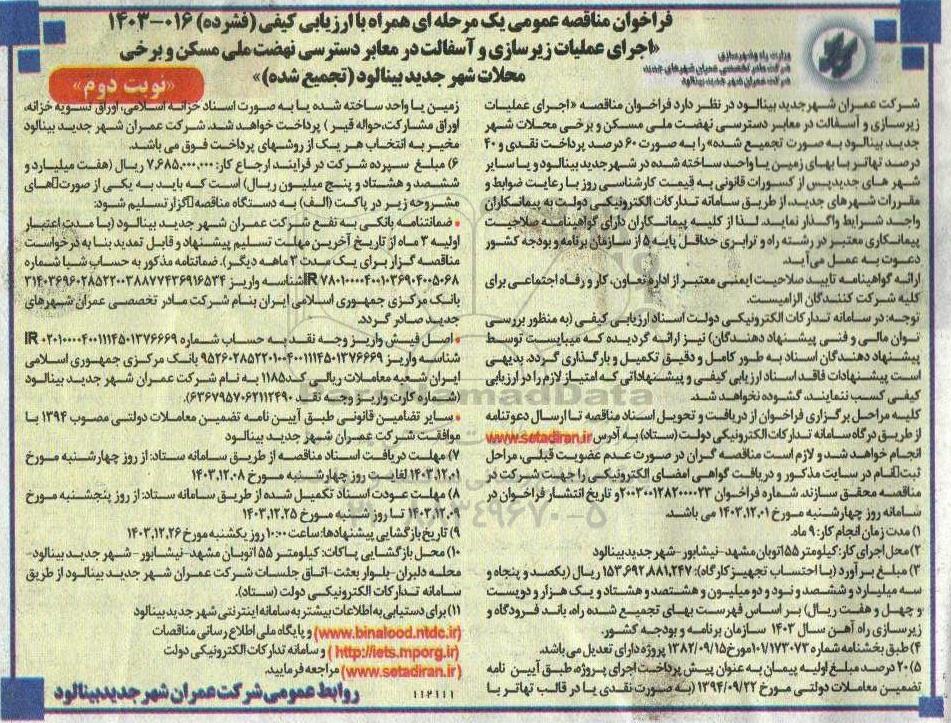 فراخوان مناقصه عمومی یک مرحله ای همراه با ارزیابی کیفی (فشرده) ۰۱۶-۱۴۰۳
«اجرای عملیات زیرسازی و آسفالت در معابر دسترسی نهضت ملی مسکن و برخی
محلات شهر جدید بینالود (تجمیع شده)»
«نوبت دوم»
وزارت راه و شهرسازی
شرکت مادر تخصصی عمران شهرهای جدید
شرکت عمران شهر جدید بینالود
شرکت عمران شهر جدید بینالود در نظر دارد فراخوان مناقصه «اجرای عملیات
زیرسازی و آسفالت در معابر دسترسی نهضت ملی مسکن و برخی محلات شهر
جدید بینالود به صورت تجمیع شده» را به صورت ۶۰ درصد پرداخت نقدی و ۴۰
درصد تهاتر با بهای زمین یا واحد ساخته شده در شهر جدید بینالود و یا سایر
شهر های جدید پس از کسورات قانونی به قیمت کارشناسی روز با رعایت ضوابط و
مقررات شهرهای جدید، از طریق سامانه تدارکات الکترونیکی دولت به پیمانکاران
واجد شرایط واگذار نماید. لذا از کلیه پیمانکاران دارای گواهینامه صلاحیت
پیمانکاری معتبر در رشته راه و ترابری حداقل پایه ۵ از سازمان برنامه و بودجه کشور
دعوت به عمل می آید.
ارائه گواهینامه تایید صلاحیت ایمنی معتبر از اداره تعاون، کار و رفاه اجتماعی برای
کلیه شرکت کنندگان الزامیست.
توجه: در سامانه تدارکات الکترونیکی دولت اسناد ارزیابی کیفی (به منظور بررسی
توان مالی و فنی پیشنهاد دهندگان) نیز ارائه گردیده که میبایست توسط
پیشنهاد دهندگان اسناد به طور کامل و دقیق تکمیل و بارگذاری گردد. بدیهی
است پیشنهادات فاقد اسناد ارزیابی کیفی و پیشنهاداتی که امتیاز لازم را در ارزیابی
کیفی کسب ننمایند، گشوده نخواهد شد.
کلیه مراحل برگزاری فراخوان از دریافت و تحویل اسناد مناقصه تا ارسال دعوتنامه
از طریق درگاه سامانه تدارکات الکترونیکی دولت (ستاد) به آدرس www.setadiran.ir
انجام خواهد شد و لازم است مناقصه گران در صورت عدم عضویت قبلی، مراحل
ثبت نام در سایت مذکور و دریافت گواهی امضای الکترونیکی را جهت شرکت در
مناقصه محقق سازند. شماره فراخوان ۲۰۰۳۰۰۱۲۸۲۰۰۰۰۲۳ و تاریخ انتشار فراخوان در
سامانه روز چهارشنبه مورخ ۱۴۰۳.۱۲.۰۱ می باشد.
۱) مدت زمان انجام کار: ۹ ماه.
۲) محل اجرای کار: کیلومتر ۵۵ اتوبان مشهد-نیشابور -شهر جدید بینالود
۳) مبلغ برآورد (با احتساب تجهیز کارگاه): ۱۵۳,۶۹۲,۸۸۱,۲۴۷ ریال (یکصد و پنجاه و
سه میلیارد و ششصد و نود و دو میلیون و هشتصد و هشتاد و یک هزار و دویست
و چهل و هفت ریال) بر اساس فهرست بهای تجمیع شده راه، باند فرودگاه و
زیرسازی راه آهن سال ۱۴۰۳ سازمان برنامه و بودجه کشور.
۴) طبق بخشنامه شماره ۱۰۱/۱۷۳۰۷۳ مورخ ۱۳۸۲/۰۹/۱۵ پروژه دارای تعدیل می باشد.
۵) ۲۰ درصد مبلغ اولیه پیمان به عنوان پیش پرداخت اجرای پروژه، طبق آیین نامه
تضمین معاملات دولتی مورخ ۱۳۹۴/۰۹/۲۲ (به صورت نقدی یا در قالب تهاتر با
زمین یا واحد ساخته شده یا به صورت اسناد خزانه اسلامی، اوراق تسویه خزانه،
اوراق مشارکت، حواله قیر) پرداخت خواهد شد. شرکت عمران شهر جدید بینالود
مخیر به انتخاب هر یک از روشهای پرداخت فوق می باشد.
۶) مبلغ سپرده شرکت در فرایند ارجاع کار: ۷,۶۸۵,۰۰۰,۰۰۰ ریال (هفت میلیارد و
ششصد و هشتاد و پنج میلیون ریال) است که باید به یکی از صورت های
مشروحه زیر در پاکت (الف) به دستگاه مناقصه گزار تسلیم شود:
• ضمانتنامه بانکی به نفع شرکت عمران شهر جدید بینالود (با مدت اعتبار
اولیه ۳ ماه از تاریخ آخرین مهلت تسلیم پیشنهاد و قابل تمدید بنا به درخواست
مناقصه گزار برای یک مدت ۳ ماهه دیگر). ضمانتنامه مذکور به حساب شبا شماره
IR۷۸۰۱۰۰۰۰۴۰۰۱۰۳۶۹۰۴۰۰۵۰۶۸ شناسه واریز ۳۱۴۰۳۶۹۶۰۲۸۵۲۲۰۰۳۸۸۷۷۴۳۶۹۱۶۵۳۴
بانک مرکزی جمهوری اسلامی ایران بنام شرکت مادر تخصصی عمران شهرهای
جدید صادر گردد.
• اصل فیش واریز وجه نقد به حساب شماره IR۰۲۰۱۰۰۰۰۴۰۰۱۱۱۴۵۰۱۳۷۶۶۶۹
شناسه واریز ۹۵۲۶۰۲۸۵۲۲۰۱۰۴۰۰۱۱۱۴۵۰۱۳۷۶۶۶۹ بانک مرکزی جمهوری اسلامی
ایران شعبه معاملات ریالی کد ۱۱۸۵ به نام شرکت عمران شهر جدید بینالود
(شماره کارت واریز وجه نقد ۶۳۶۷۹۵۷۰۶۲۱۱۲۴۹۰).
• سایر تضامین قانونی طبق آیین نامه تضمین معاملات دولتی مصوب ۱۳۹۴ با
موافقت شرکت عمران شهر جدید بینالود
۷) مهلت دریافت اسناد مناقصه از طریق سامانه ستاد: از روز چهارشنبه مورخ
۱۴۰۳.۱۲.۰۱ لغایت روز چهارشنبه مورخ ۱۴۰۳.۱۲.۰۸
۸) مهلت عودت اسناد تکمیل شده از طریق سامانه ستاد: از روز پنجشنبه مورخ
۱۴۰۳.۱۲.۰۹ تا روز شنبه مورخ ۱۴۰۳.۱۲.۲۵
۹) تاریخ بازگشایی پیشنهادها: ساعت ۱۰:۰۰ روز یکشنبه مورخ ۱۴۰۳.۱۲.۲۶
۱۰) محل بازگشایی پاکات: کیلومتر ۵۵ اتوبان مشهد-نیشابور -شهر جدید بینالود-
محله دلبران-بلوار بعثت-اتاق جلسات شرکت عمران شهر جدید بینالود از طریق
سامانه تدارکات الکترونیکی دولت (ستاد).
۱۱) برای دستیابی به اطلاعات بیشتر به سامانه اینترنتی شهر جدید بینالود
(www.binalood.ntdc.ir) و پایگاه ملی اطلاع رسانی مناقصات
(http://iets.mporg.ir) و سامانه تدارکات الکترونیکی دولت
(www.setadiran.ir) مراجعه فرمایید.
۱۱۲۱۱۱
روابط عمومی شرکت عمران شهر جدید بینالود